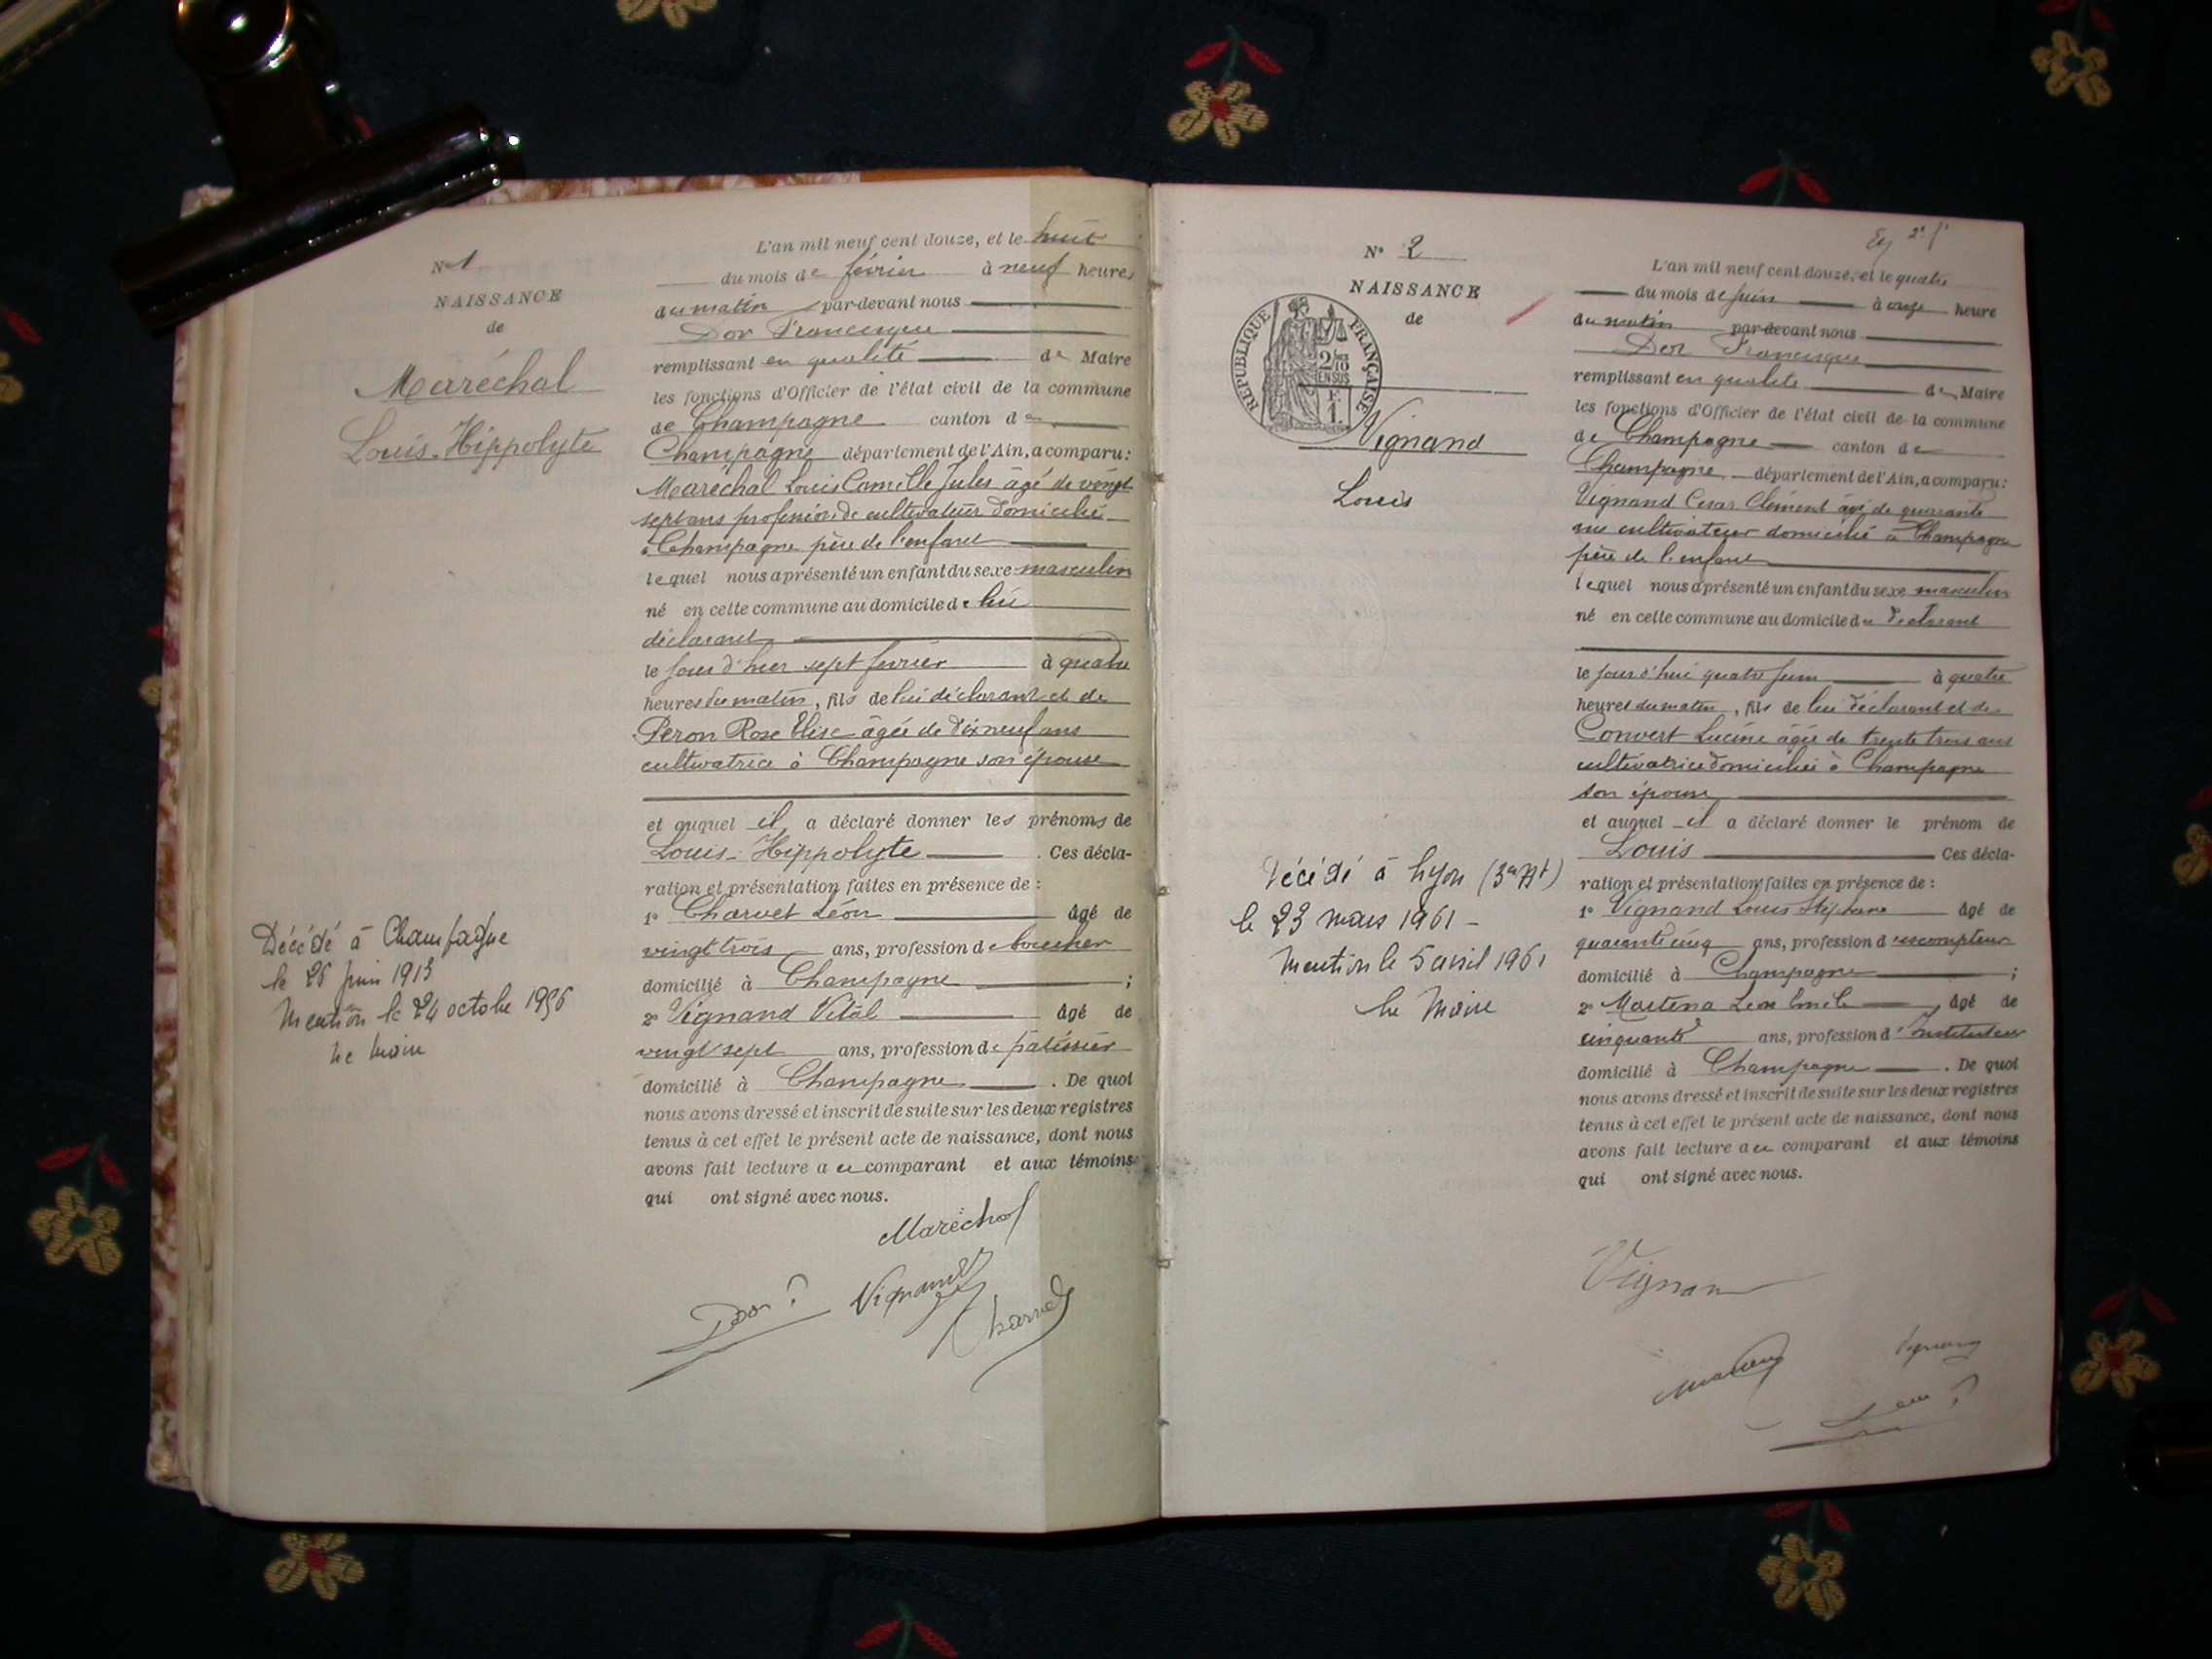 N° 1
NAISSANCE
de
Maréchal
Louis-Hippolyte
Décédé à Champagne
le 26 juin 1913
Mention le 24 octobre 1956
Le Maire
L'an mil neuf cent douze, et le huit
du mois de février à neuf heures
du matin par-devant nous
Dor Francisque
remplissant en qualité de Maire
les fonctions d'Officier de l'état civil de la commune
de Champagne canton de
Champagne département de l'Ain, a comparu:
Maréchal Louis Camille Jules âgé de vingt
sept ans profession de cultivateur domicilié
à Champagne père de l'enfant
lequel nous a présenté un enfant du sexe masculin
né en cette commune au domicile de lui
déclarant
le jour d'hier sept février à quatre
heures du matin, fils de lui déclarant et de
Peron Rose Elise âgée de dix neuf ans
cultivatrice à Champagne son épouse
et auquel il a déclaré donner les prénoms de
Louis-Hippolyte. Ces décla-
ration et présentation faites en présence de :
1° Charvet Léon âgé de
vingt trois ans, profession de boucher
domicilié à Champagne ;
2° Vignand Vital âgé de
vingt sept ans, profession de pâtissier
domicilié à Champagne . De quoi
nous avons dressé et inscrit de suite sur les deux registres
tenus à cet effet le présent acte de naissance, dont nous
avons fait lecture au comparant et aux témoins
qui ont signé avec nous.
Maréchal
Dor Vignand
Charvet
N° 2
NAISSANCE
de
RÉPUBLIQUE FRANÇAISE
2/10
EN SUS
F.
1.
Vignand
Louis
Décédé à Lyon (3e Art)
le 23 mars 1961 -
Mention le 5 avril 1961
Le Maire
L'an mil neuf cent douze, et le quatre
du mois de juin à onze heure
du matin par-devant nous
Dor Francisque
remplissant en qualité de Maire
les fonctions d'Officier de l'état civil de la commune
de Champagne canton de
Champagne département de l'Ain, a comparu:
Vignand Cesar Clément âgé de quarante
cultivateur domicilié à Champagne
père de l'enfant
lequel nous a présenté un enfant du sexe masculin
né en cette commune au domicile du déclarant
le jour d'hui quatre juin à quatre
heures du matin, fils de lui déclarant et de
Convert Lucine âgée de trente trois ans
cultivatrice domiciliée à Champagne
son épouse
et auquel il a déclaré donner le prénom de
Louis Ces décla-
ration et présentation faites en présence de :
1° Vignand Louis Stéphane âgé de
quarante cinq ans, profession d'escompteur
domicilié à Champagne ;
2° Léon Emile âgé de
cinquante ans, profession d'Instituteur
domicilié à Champagne . De quoi
nous avons dressé et inscrit de suite sur les deux registres
tenus à cet effet le présent acte de naissance, dont nous
avons fait lecture au comparant et aux témoins
qui ont signé avec nous.
Vignand